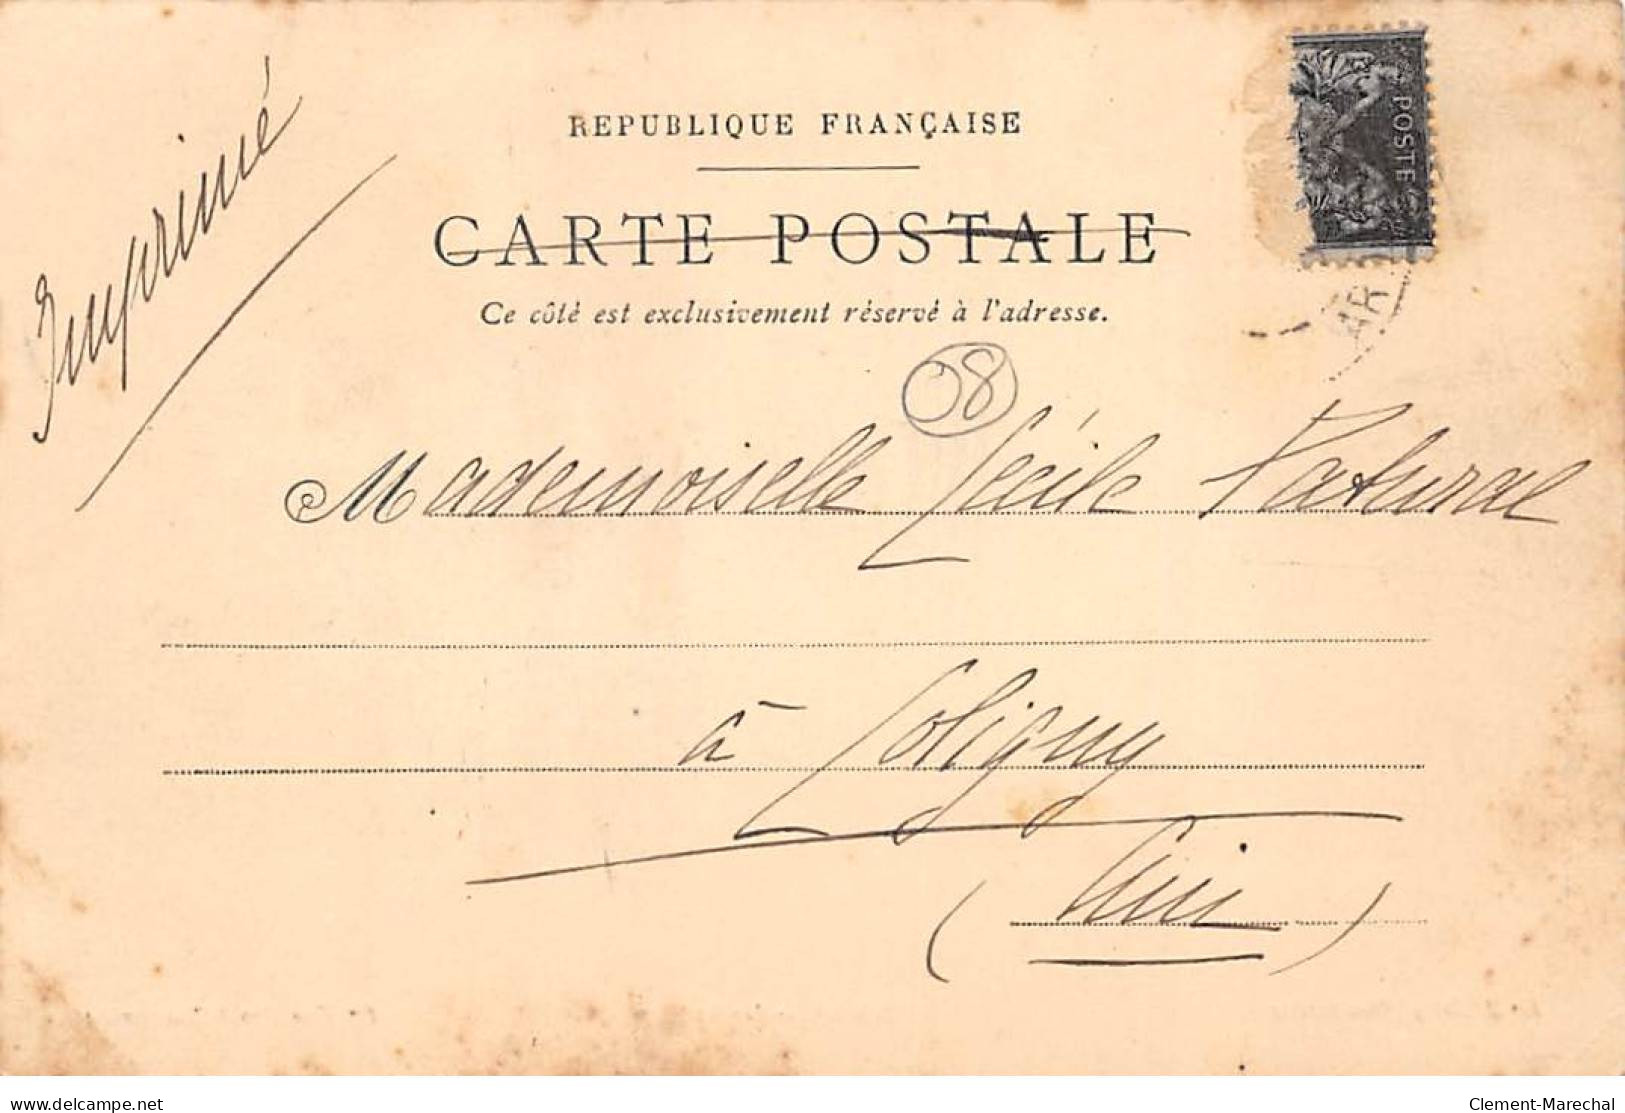 Imprimé
REPUBLIQUE FRANÇAISE
CARTE POSTALE
Ce côté est exclusivement réservé à l'adresse.
POSTE
08
Mademoiselle Cécile Paturac
à Coligny
(Ain)
delcampe.net
Clement-Marechal